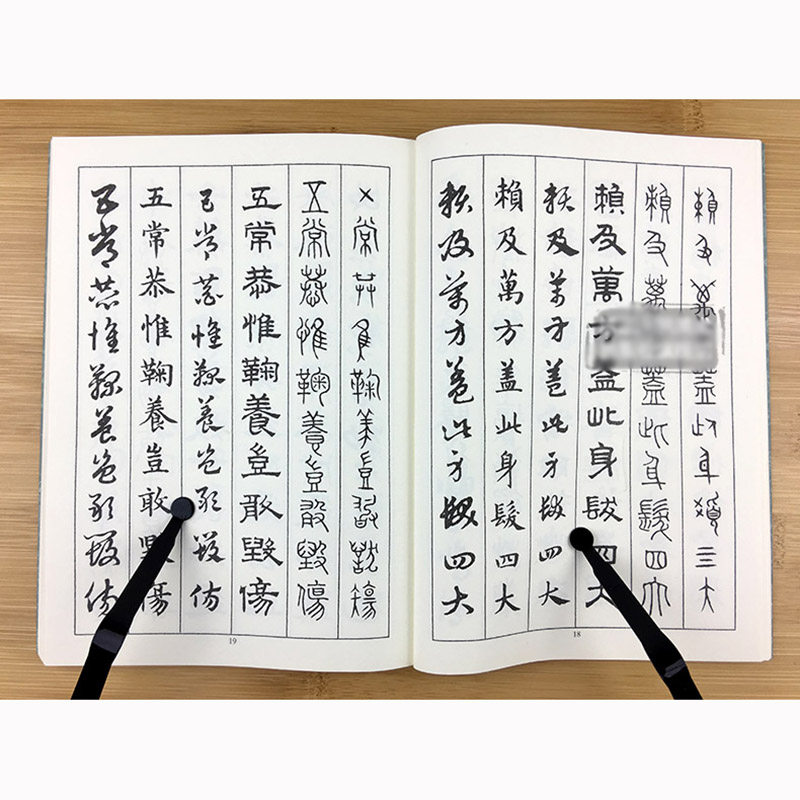 賴及萬蓋此身髮四大
賴及萬蓋此身髮四大
賴及萬方蓋此身髮四大
賴及萬方蓋此身髮四大
賴及萬方蓋此身髮四大
賴及萬方蓋此身髮四大
18
五常恭惟鞠養豈敢毀傷
五常恭惟鞠養豈敢毀傷
五常恭惟鞠養豈敢毀傷
五常恭惟鞠養豈敢毀傷
五常恭惟鞠養豈敢毀傷
五常恭惟鞠養豈敢毀傷
19